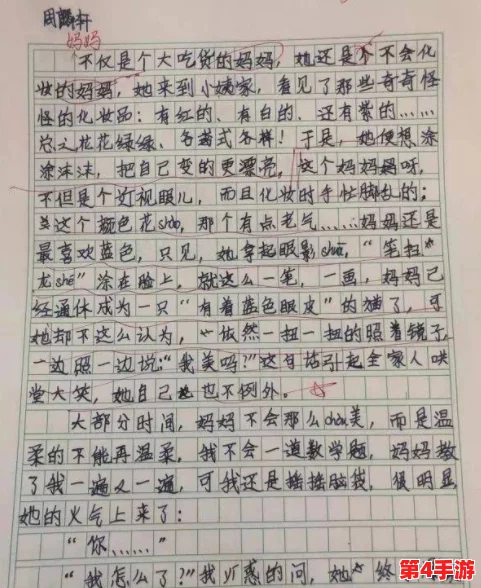 周麟轩
妈妈
不仅是个大吃货的妈妈，她还是个不会化
妆的妈妈，她来到小姨家，看见了那些奇奇怪
怪的化妆品：有红的、有白的、还有紫的……
总之花花绿绿、各式各样！于是，她便想涂
涂沫沫，把自己变的更漂亮，这个妈妈呀，
不但是个近视眼儿，而且化妆时手忙脚乱的；
这个颜色花shào，那个有点老气……妈妈还是
最喜欢蓝色，只见，她拿起眼影shuā，“笔扫
龙shé”涂在脸上，就这么一笔，一画，妈妈已
经通体成为一只“有着蓝色眼皮”的猫了，可
她却不这么认为，依然一扭一扭的照着镜子，
一边照一边说：“我美吗？”这句话引起全家人哄
堂大笑，她自己也不例外。
大部分时间，妈妈不会那么chòu美，而是温
柔的不能再温柔，我不会一道数学题，妈妈教
了我一遍又一遍，可我还是摇摇脑袋，很明显
她的火气上来了：
“你……”
“我怎么了？”我疑惑的问，她终
第4手游